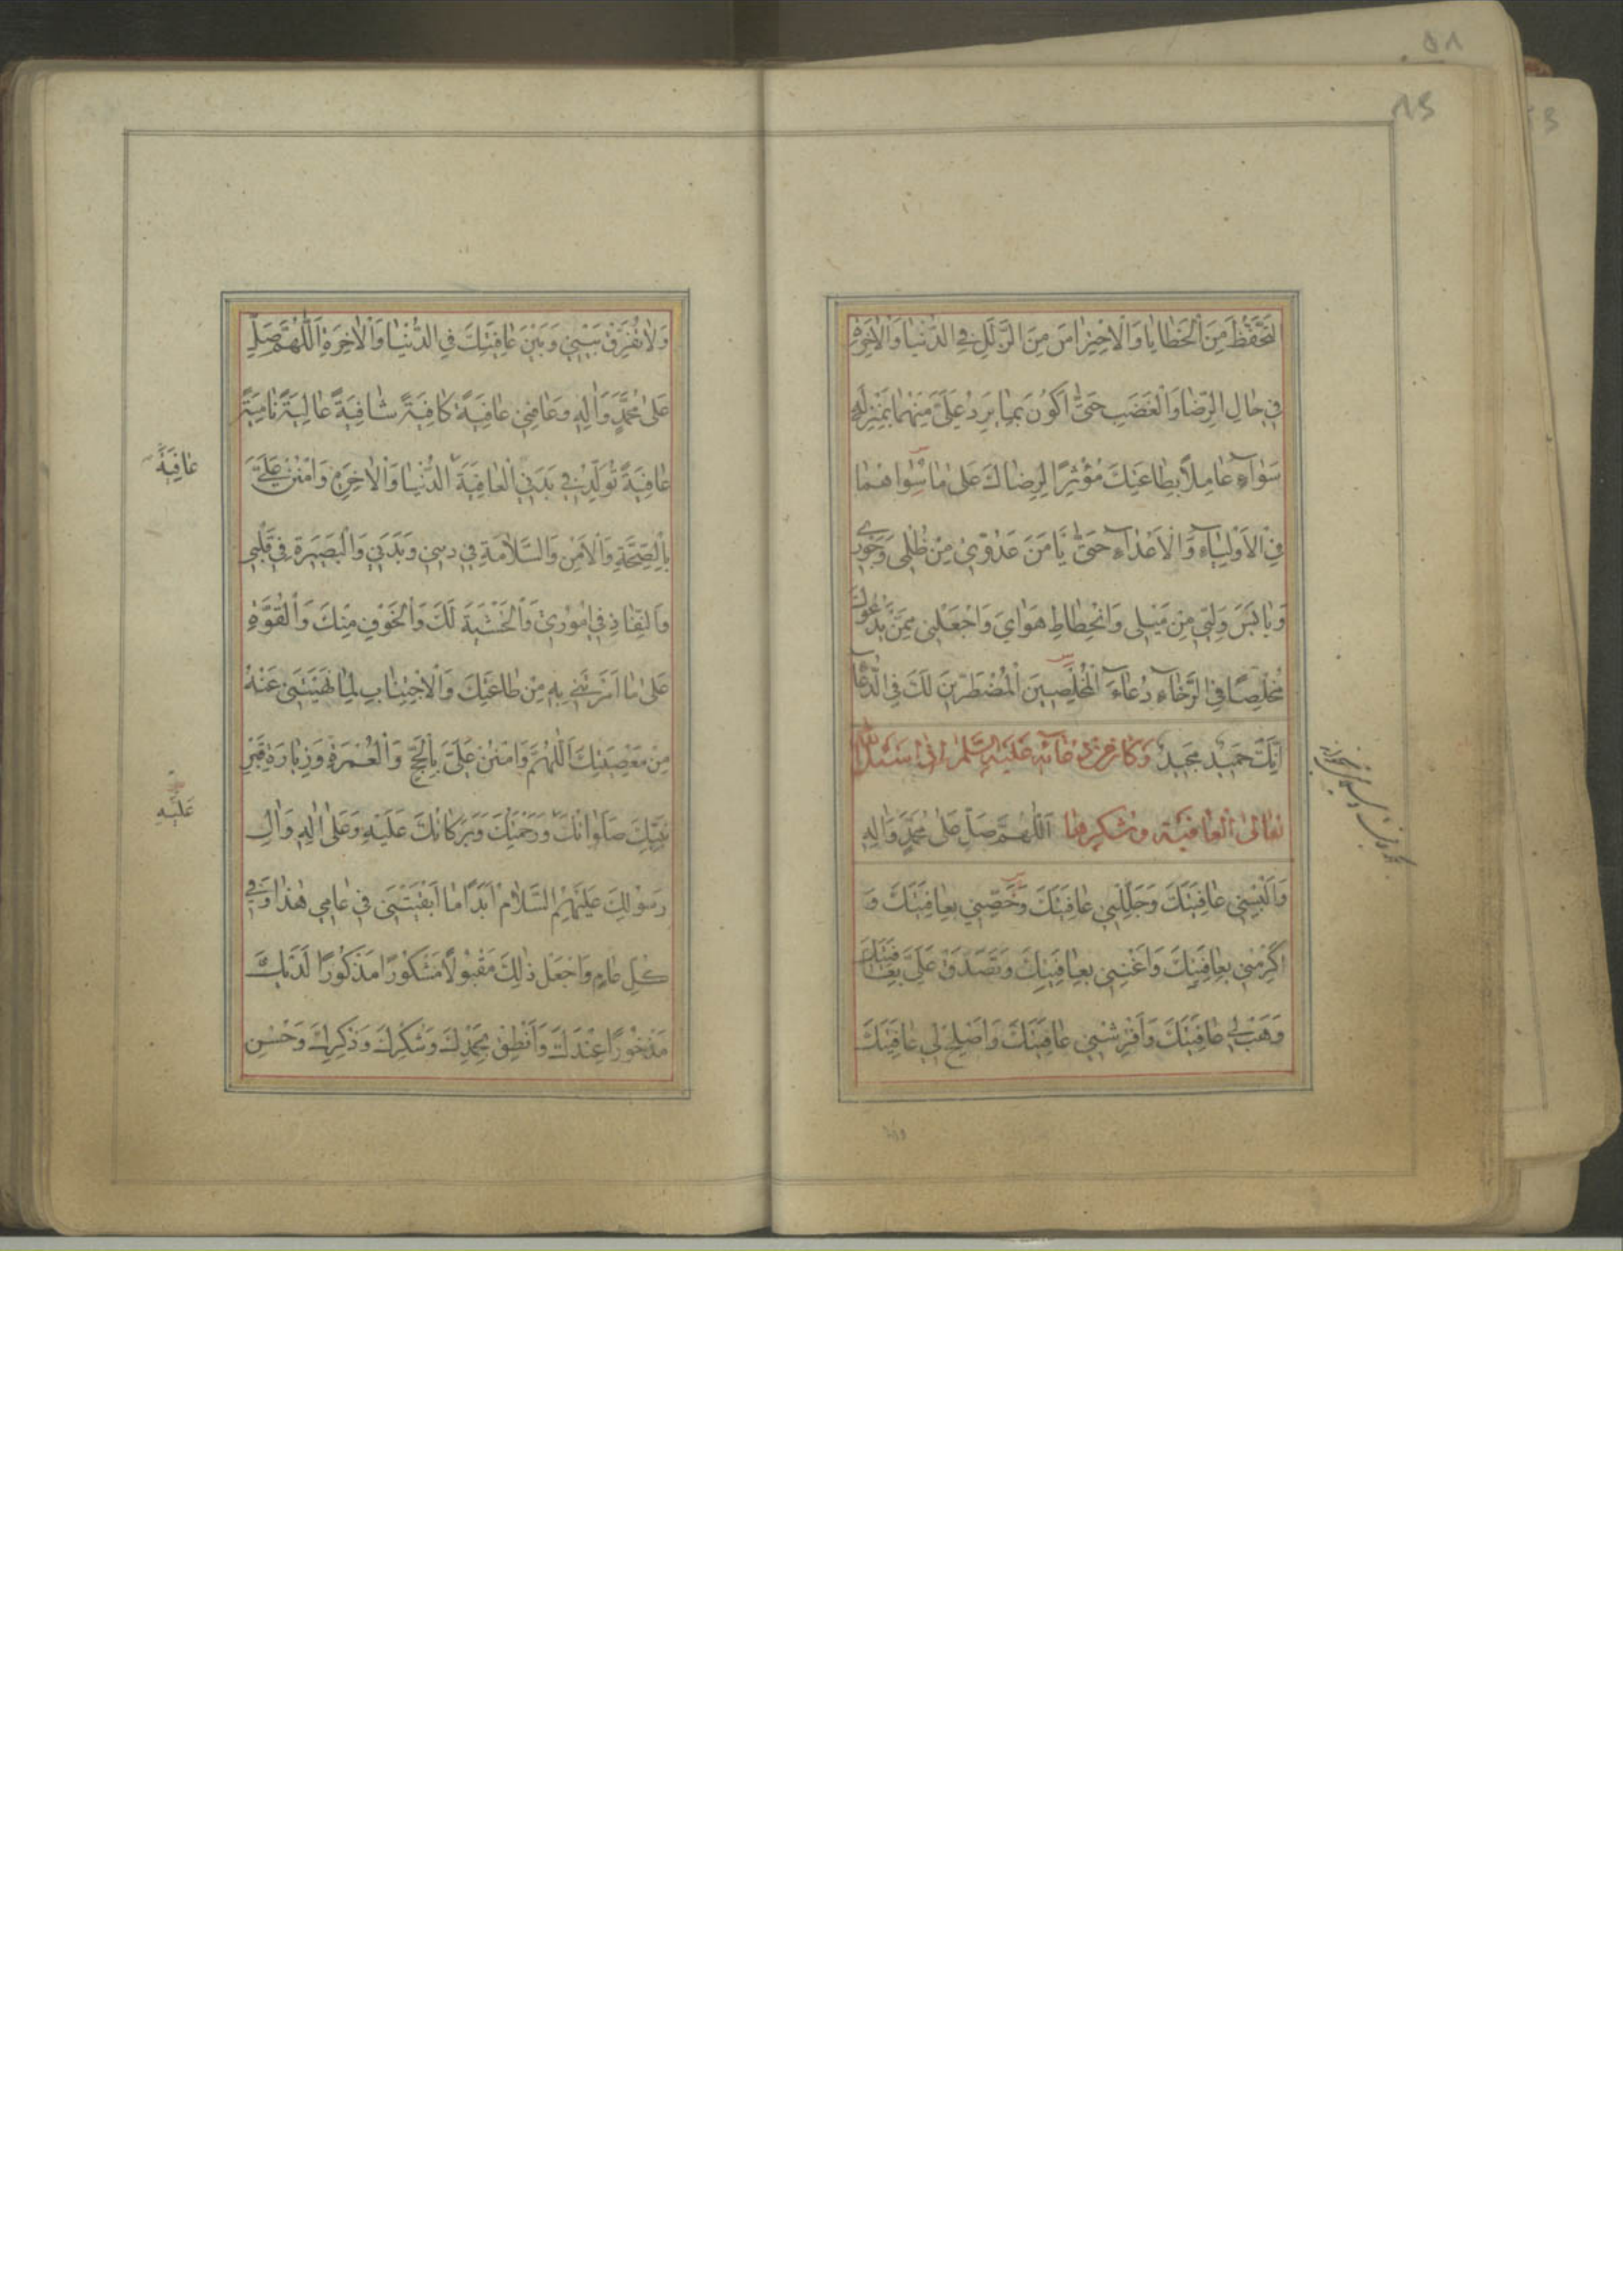 التَّحَفُّظَ مِنَ الْخَطَايَا وَالْاِحْتِرَاسَ مِنَ الزَّلَلِ فِي الدُّنْيَا وَالْاٰخِرَةِ
فِي حَالِ الرِّضَا وَالْغَضَبِ حَتّٰى اَكُونَ بِمَا يَرِدُ عَلَيَّ مِنْهُمَا بِمَنْزِلَةٍ
سَوَآءٍ عَامِلًا بِطَاعَتِكَ مُؤْثِرًا لِرِضَاكَ عَلٰى مَا سِوَاهُمَا
فِي الْاَوْلِيَآءِ وَالْاَعْدَآءِ حَتّٰى يَاْمَنَ عَدُوِّي مِنْ ظُلْمِي وَجَوْرِي
وَيَاْيَسَ وَلِيِّي مِنْ مَيْلِي وَانْحِطَاطِ هَوَايَ وَاجْعَلْنِي مِمَّنْ يَدْعُوكَ
مُخْلِصًا فِي الرَّخَآءِ دُعَآءَ الْمُخْلِصِينَ الْمُضْطَرِّينَ لَكَ فِي الدُّعَآءِ
اِنَّكَ حَمِيدٌ مَجِيدٌ وَكَانَ مِنْ دُعَائِهِ عَلَيْهِ السَّلَامُ اِذَا سَئَلَ اللهَ
تَعَالٰى الْعَافِيَةَ وَشُكْرَهَا اَللّٰهُمَّ صَلِّ عَلٰى مُحَمَّدٍ وَاٰلِهِ
وَاَلْبِسْنِي عَافِيَتَكَ وَجَلِّلْنِي عَافِيَتَكَ وَخَصِّنِي بِعَافِيَتِكَ وَ
اَكْرِمْنِي بِعَافِيَتِكَ وَاَغْنِنِي بِعَافِيَتِكَ وَتَصَدَّقْ عَلَيَّ بِعَافِيَتِكَ
وَهَبْ لِي عَافِيَتَكَ وَاَفْرِشْنِي عَافِيَتَكَ وَاَصْلِحْ لِي عَافِيَتَكَ
وَلَا تُفَرِّقْ بَيْنِي وَبَيْنَ عَافِيَتِكَ فِي الدُّنْيَا وَالْاٰخِرَةِ اَللّٰهُمَّ صَلِّ
عَلٰى مُحَمَّدٍ وَاٰلِهِ وَعَافِنِي عَافِيَةً كَافِيَةً شَافِيَةً عَالِيَةً نَامِيَةً
عَافِيَةً تُوَلِّدُ فِي بَدَنِي الْعَافِيَةَ الدُّنْيَا وَالْاٰخِرَةِ وَامْنُنْ عَلَيَّ
عَافِيَةَ
بِالصِّحَّةِ وَالْاَمْنِ وَالسَّلَامَةِ فِي دِينِي وَبَدَنِي وَالْبَصِيرَةِ فِي قَلْبِي
وَالنَّفَاذِ فِي اُمُورِي وَالْخَشْيَةِ لَكَ وَالْخَوْفِ مِنْكَ وَالْقُوَّةِ
عَلٰى مَا اَمَرْتَنِي بِهِ مِنْ طَاعَتِكَ وَالْاِجْتِنَابِ لِمَا نَهَيْتَنِي عَنْهُ
مِنْ مَعْصِيَتِكَ اَللّٰهُمَّ وَامْنُنْ عَلَيَّ بِالْحَجِّ وَالْعُمْرَةِ وَزِيَارَةِ قَبْرِ
نَبِيِّكَ صَلَوَاتُكَ وَرَحْمَتُكَ وَبَرَكَاتُكَ عَلَيْهِ وَعَلٰى اٰلِهِ وَاٰلِ
عَلَيْهِ
رَسُولِكَ عَلَيْهِمُ السَّلَامُ اَبَدًا مَا اَبْقَيْتَنِي فِي عَامِي هٰذَا وَفِي
كُلِّ عَامٍ وَاجْعَلْ ذٰلِكَ مَقْبُولًا مَشْكُورًا مَذْكُورًا لَدَيْكَ
مَذْخُورًا عِنْدَكَ وَاَنْطِقْ بِحَمْدِكَ وَشُكْرِكَ وَذِكْرِكَ وَحُسْنِ